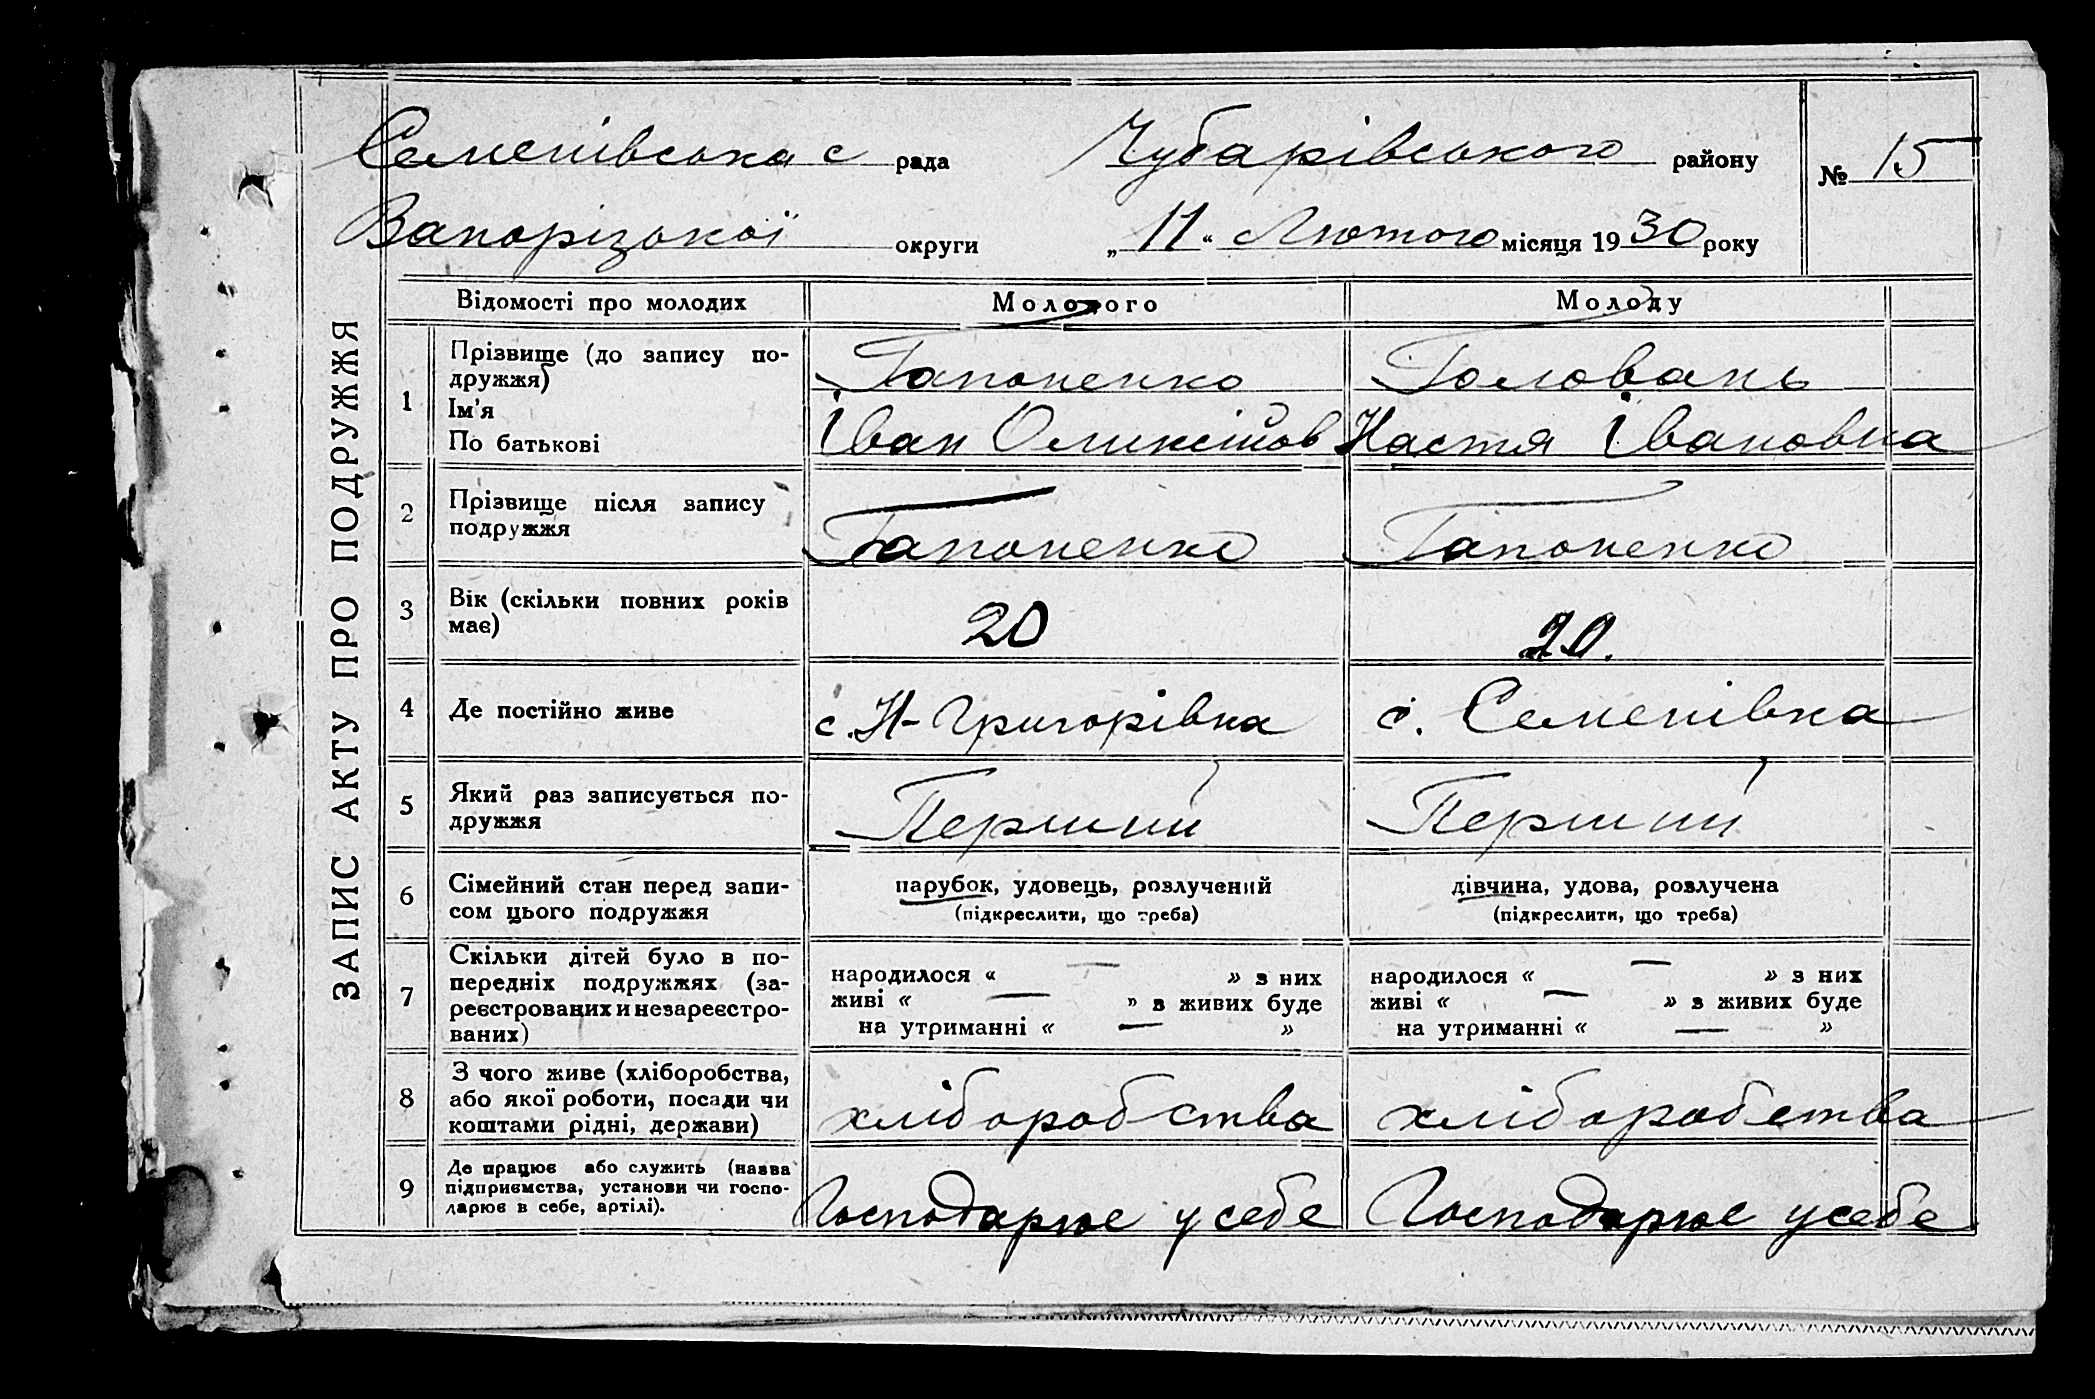 ЗАПИС АКТУ ПРО ПОДРУЖЖЯ
Семенівська с рада Чубарівського району № 15
Запорізької округи „11“ Лютого місяця 1930 року
Відомості про молодих Молодого Молоду
1 Прізвище (до запису по-
дружжя) Гапоненко Головань
Ім'я
По батькові Іван Олексійов Настя Івановна
2 Прізвище після запису
подружжя Гапоненко Гапоненко
3 Вік (скільки повних років
має) 20 20.
4 Де постійно живе с. Н-Григорівка с. Семенівка
5 Який раз записується по-
дружжя Перший Перший
6 Сімейний стан перед запи-
сом цього подружжя
парубок, удовець, розлучений
(підкреслити, що треба)
дівчина, удова, розлучена
(підкреслити, що треба)
7 Скільки дітей було в по-
передніх подружжях (за-
реєстрованих и незареєстро-
ваних)
народилося « — » з них
живі « — » з живих буде
на утриманні « — »
народилося « — » з них
живі « — » з живих буде
на утриманні « — »
8 З чого живе (хліборобства,
або якої роботи, посади чи
коштами рідні, держави)
хліборобства хліборобства
9 Де працює або служить (назва
підприємства, установи чи госпо-
дарює в себе, артілі).
Господарює у себе Господарює у себе